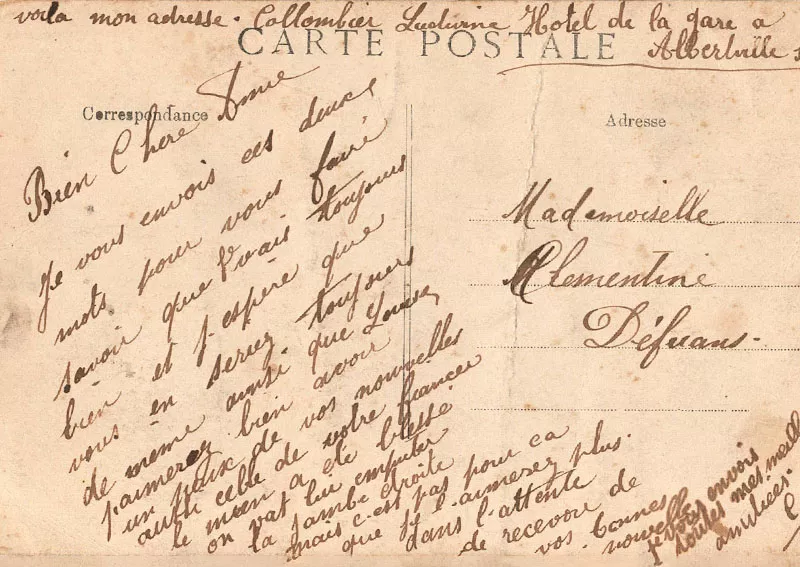 voila mon adresse. Collombier Ludivine Hotel de la gare a
Albertville
CARTE POSTALE
Correspondance
Adresse
Bien Chere Amie
Je vous envois ces deux
mots pour vous faire
savoir que vais toujours
bien et j'espère que
vous en serez toujours
de meme ainsi que Louise
j'aimerez bien avoir
un peux de vos nouvelles
aussi celle de votre francer
le mien a été blessé
on vat lui emputer
la jambe droite
mais c'est pas pour ca
que je l'aimerez plus.
dans l'attente
de recevoir de
vos bonnes
nouvelle
je vous envois
toutes mes meill
amitiées.
C
Mademoiselle
Clementine
Défrans.